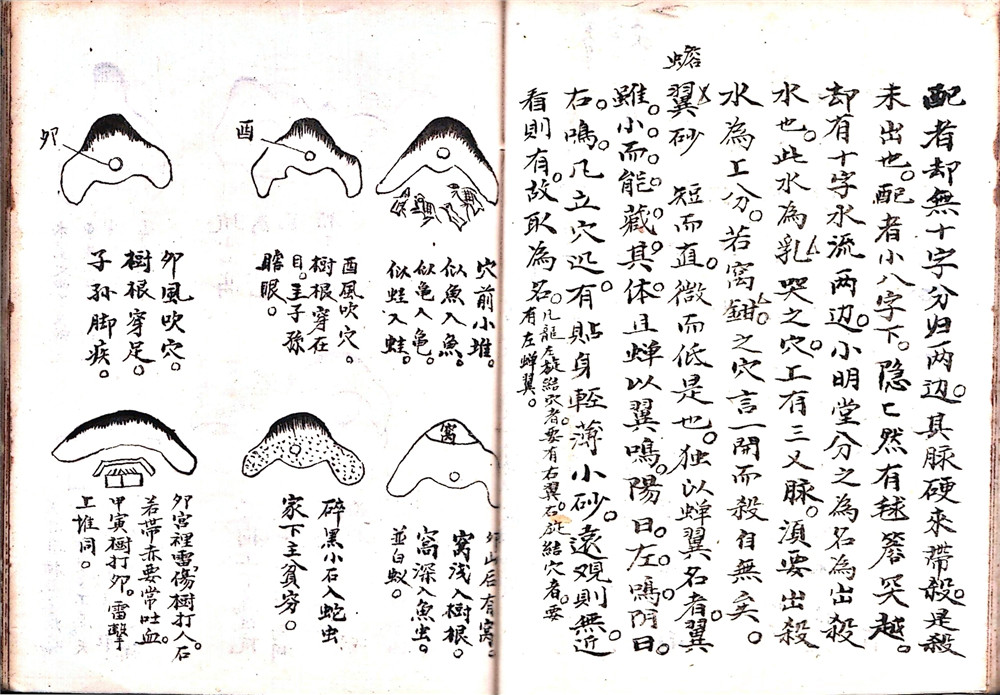 配者却無十字分归两边。其脉硬来帶殺。是殺
未出也。配者小八字下。隐〻然有毬簷突越。
却有十字水流两边。小明堂分之為名為出殺
水也。此水為乳突之穴。上有三叉脉。須要出殺
水為上分。若窩鉗之穴言一開而殺自無矣。
蟾
翼砂 短而直。微而低是也。独以蝉翼名者。翼
雖小而能藏其体。且蝉以翼鳴。陽日左鳴。阴日
右鳴。凡立穴迟。有貼身輕薄小砂。遠观則無。近
看則有。故取為名。凡龍左旋結穴者。要有右翼。右旋結穴者。要
有左蝉翼。
穴前小堆。
似魚入魚。
似龟入龟。
似蛙入蛙。
酉
酉風吹穴。
樹根穿在
目。主子孫
瞎眼。
卯
卯風吹穴。
樹根穿足。
子孫脚疾。
窩
后有窩。
窩浅入樹根。
窩深入魚虫。
並白蚁。
碎黑小石入蛇虫
家下主貧穷。
卯宮裡雷傷樹打人。石
若帶赤要常吐血。
甲寅樹打卯。雷擊
上堆同。